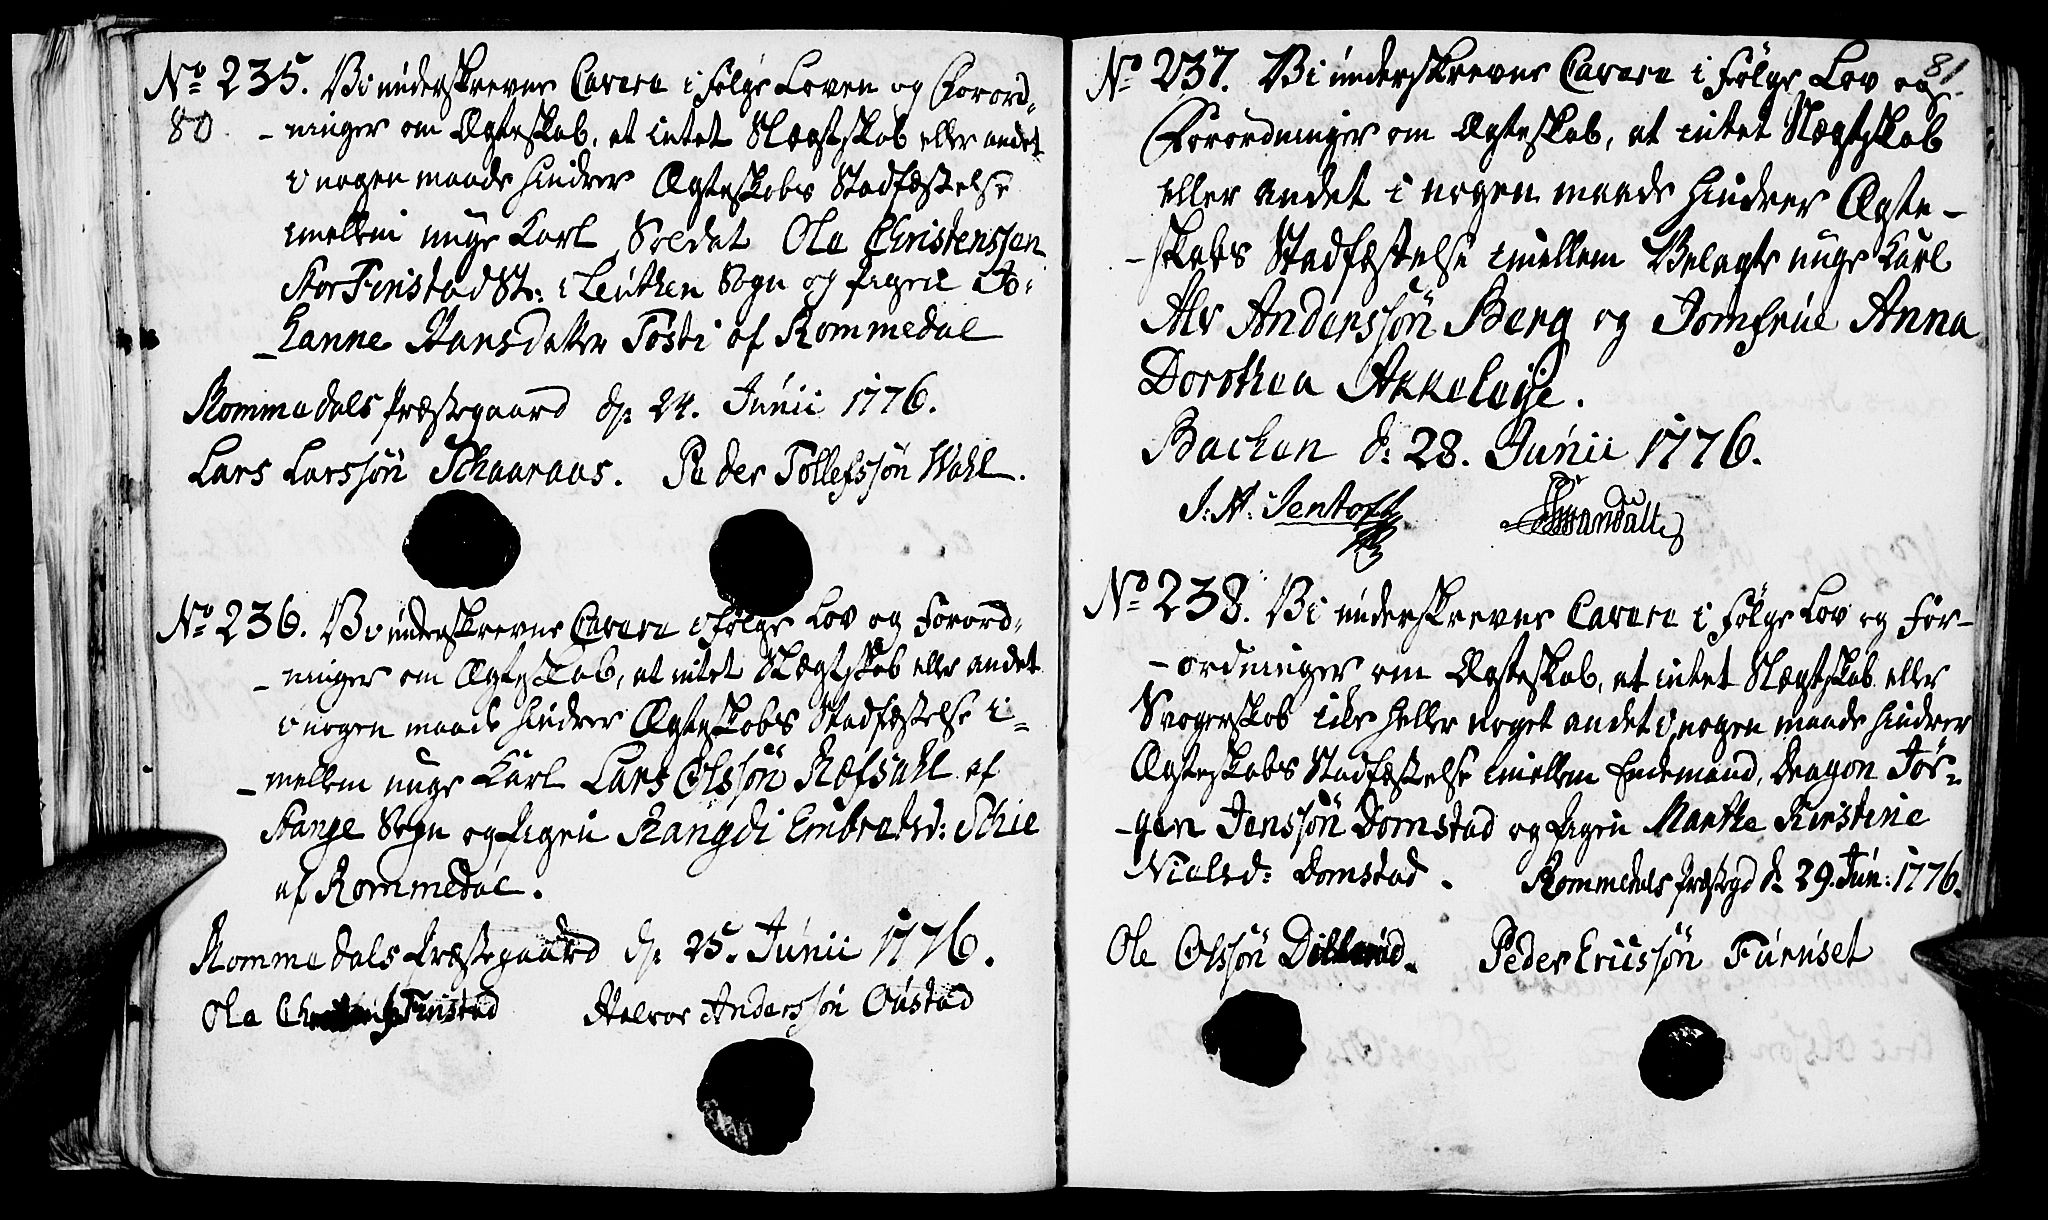 No 235. Vi underskrevne Cavera i følge Loven og Forord-
80 - ninger om Ægteskab, at intet Slægtskab eller andet
i nogen maade hindrer Ægteskabs Stadfæstelse
imellem unge Karl Soldat Ole Christenssøn
Stor Finstad St: i Leuthen Sogn og Pigen Jo-
- hanne Hansdatter Tosti af Rommedal
Rommedals Præstegaard d: 24. Junii 1776.
Lars Larssøn Schaaraas. Peder Tollefssøn Wahl.
No 236. Vi underskrevne Cavera i følge Lov og Forord-
- ninger om Ægteskab, at intet Slægtskab eller andet
i nogen maade hindrer Ægteskabs Stadfæstelse i-
- mellem unge Karl Lars Olssøn Refsahl af
Stange Sogn og Pigen Rangdi Embretsd: Schie
af Rommedal.
Rommedals Præstegaard d: 25. Junii 1776.
Ole Finstad Halvor Anderssøn Oustad
81.
No 237. Vi underskrevne Cavera i følge Lov og
Forordninger om Ægteskab, at intet Slægtskab
eller andet i nogen maade hindrer Ægte-
- skabs Stadfæstelse imellem Velagte unge Karl
Alv Anderssøn Berg og Jomfrue Anna
Dorothea Akkeleije.
Bachen d: 28. Junii 1776.
J: N: Jentoft
No 238. Vi underskrevne Cavera i følge Lov og For-
- ordninger om Ægteskab, at intet Slægtskab eller
Svogerskab ikke heller noget andet i nogen maade hindrer
Ægteskabs Stadfæstelse imellem Enkemand, Dragon Jør-
- gen Jenssøn Domstad og Pigen Marthe Kirstine
Nielsd: Domstad. Rommedals Præstegd d. 29. Jun: 1776.
Ole Olssøn Peder Ericssøn Furuset